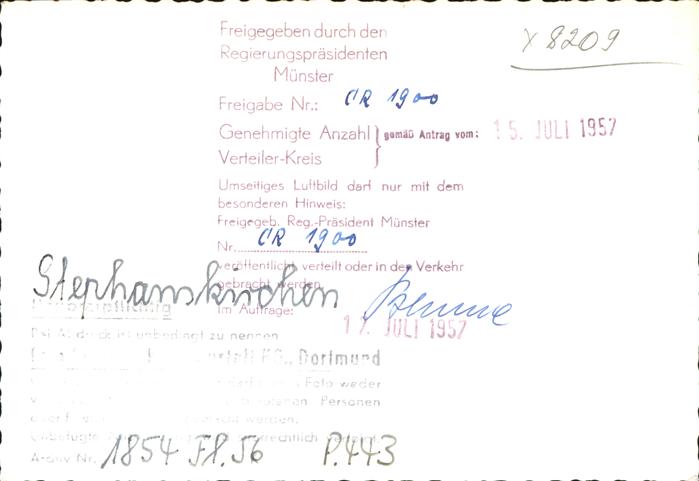 Freigegeben durch den
Regierungspräsidenten
Münster
X 8209
Freigabe Nr.: CR 1900
Genehmigte Anzahl } gemäß Antrag vom: 15. JULI 1957
Verteiler-Kreis
Umseitiges Luftbild darf nur mit dem
besonderen Hinweis:
Freigegeb. Reg.-Präsident Münster
Nr. CR 1900
veröffentlicht verteilt oder in den Verkehr
gebracht werden.
Stephanskirchen
Im Auftrage:
17. JULI 1957
ist unbedingt zu nennen
KG., Dortmund
Foto weder
Personen
werden.
Archiv Nr. 1854 Fl. 56 P. 443